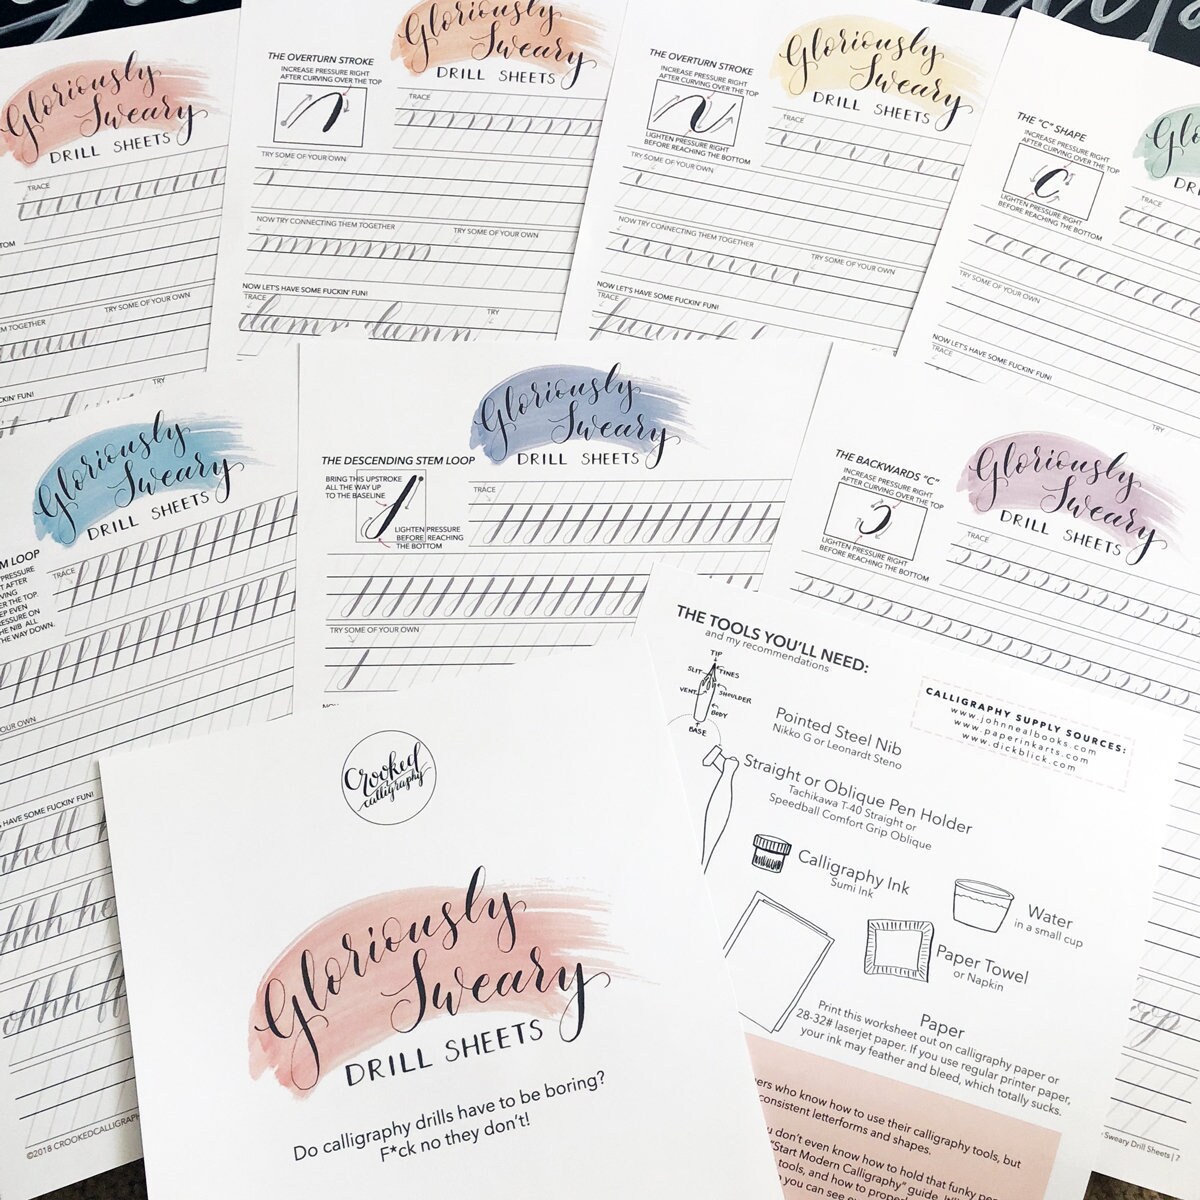 Gloriously
Sweary
DRILL SHEETS
TRACE
TRY SOME OF YOUR OWN
TRY
THE OVERTURN STROKE
INCREASE PRESSURE RIGHT
AFTER CURVING OVER THE TOP
Gloriously
Sweary
DRILL SHEETS
TRACE
TRY SOME OF YOUR OWN
NOW TRY CONNECTING THEM TOGETHER
TRY SOME OF YOUR OWN
NOW LET'S HAVE SOME FUCKIN' FUN!
TRACE
TRY
damn damn
THE OVERTURN STROKE
INCREASE PRESSURE RIGHT
AFTER CURVING OVER THE TOP
LIGHTEN PRESSURE RIGHT
BEFORE REACHING THE BOTTOM
Gloriously
Sweary
DRILL SHEETS
TRACE
TRY SOME OF YOUR OWN
NOW TRY CONNECTING THEM TOGETHER
TRY SOME OF YOUR OWN
NOW LET'S HAVE SOME FUCKIN' FUN!
TRACE
THE "C" SHAPE
INCREASE PRESSURE RIGHT
AFTER CURVING OVER THE TOP
LIGHTEN PRESSURE RIGHT
BEFORE REACHING THE BOTTOM
TRACE
TRY SOME OF YOUR OWN
NOW LET'S HAVE SOME FUCKIN' FUN!
TRACE
TRY
Gloriously
Sweary
DRILL SHEETS
TRACE
THE DESCENDING STEM LOOP
BRING THIS UPSTROKE
ALL THE WAY UP
TO THE BASELINE
LIGHTEN PRESSURE
BEFORE REACHING
THE BOTTOM
Gloriously
Sweary
DRILL SHEETS
TRACE
TRY SOME OF YOUR OWN
THE BACKWARDS "C"
INCREASE PRESSURE RIGHT
AFTER CURVING OVER THE TOP
LIGHTEN PRESSURE RIGHT
BEFORE REACHING THE BOTTOM
Gloriously
Sweary
DRILL SHEETS
TRACE
©2018 CROOKEDCALLIGRAPH
Crooked
calligraphy
Gloriously
Sweary
DRILL SHEETS
Do calligraphy drills have to be boring?
F*ck no they don't!
THE TOOLS YOU'LL NEED:
and my recommendations
TIP
SLIT
TINES
VENT
SHOULDER
BODY
BASE
CALLIGRAPHY SUPPLY SOURCES:
www.johnnealbooks.com
www.paperinkarts.com
www.dickblick.com
Pointed Steel Nib
Nikko G or Leonardt Steno
Straight or Oblique Pen Holder
Tachikawa T-40 Straight or
Speedball Comfort Grip Oblique
Calligraphy Ink
Sumi Ink
Water
in a small cup
Paper Towel
or Napkin
Paper
Print this worksheet out on calligraphy paper or
28-32# laserjet paper. If you use regular printer paper,
your ink may feather and bleed, which totally sucks.
who know how to use their calligraphy tools, but
consistent letterforms and shapes.
don't even know how to hold that funky
"Start Modern Calligraphy" guide.
tools, and how to
you can see
Sweary Drill Sheets | 7